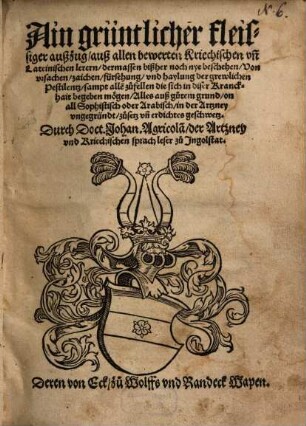 N: 6.
Ain grüntlicher fleis-
siger außzug / auß allen bewerten Kriechischen vñ
Lateinischen lerern / dermassen bißher noch nye beschehen / Von
vrsachen / zaichen / fürsehung / vnd haylung der grewlichen
Pestilentz / sampt allẽ zůfellen die sich in diser Kranck-
hait begeben mögen / Alles auß gůtem grund / on
all Sophistisch oder Arabisch / in der Artzney
vngegründt / zůsetz vñ erdichtes geschwetz.
Durch Doct. Johan. Agricolã / der Artzney
vnd Kriechischen sprach leser zů Ingolstat.
Deren von Eck / zů Wolffs vnd Randeck Wapen.